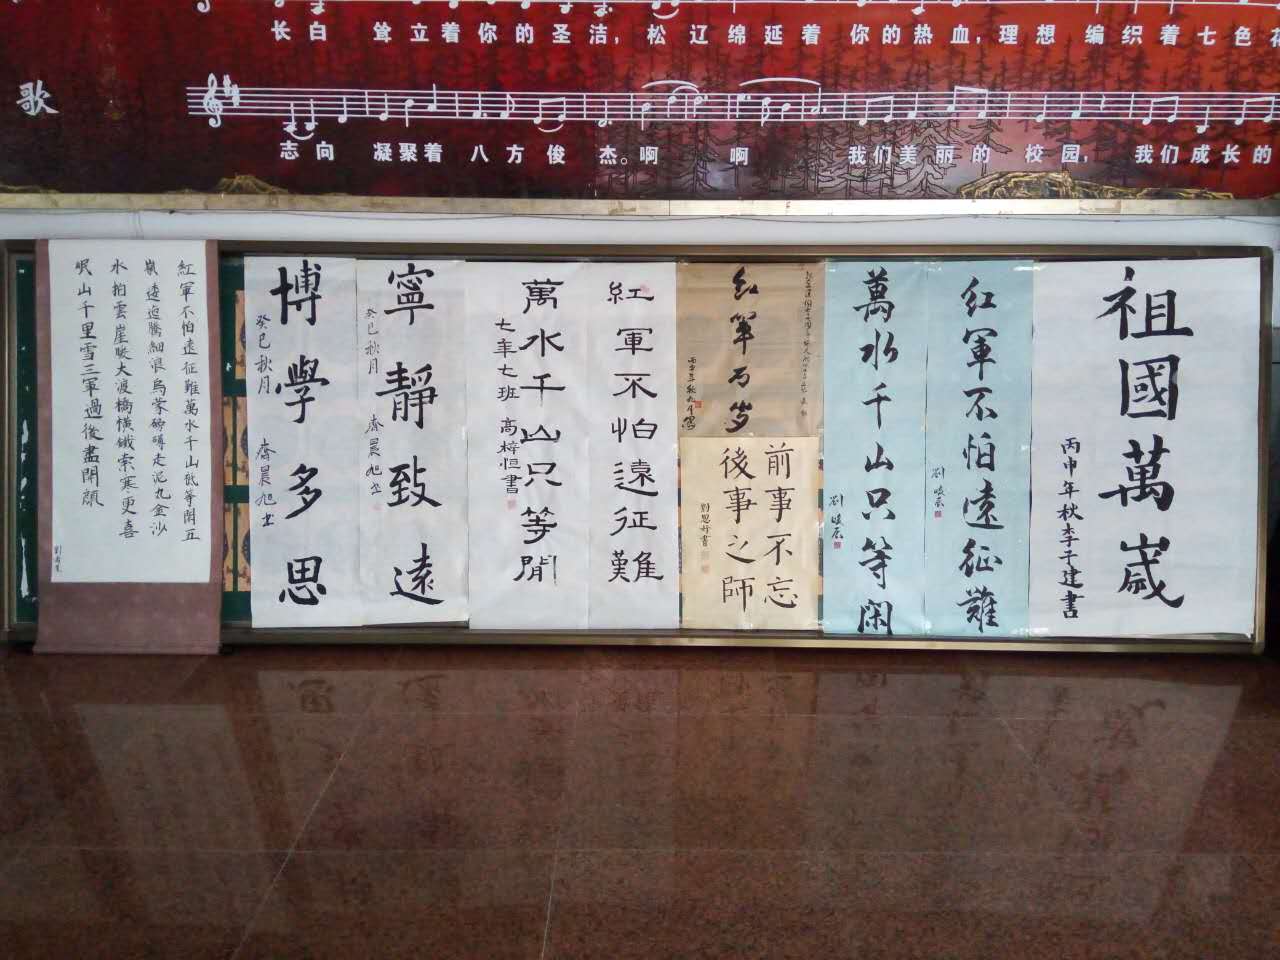 长白 耸立着你的圣洁，松辽绵延着 你的热血，理想 编织着七色
歌
志向 凝聚着 八方俊 杰。啊 啊 我们美丽的 校园， 我们成长的
祖國萬歲
丙申年秋李子建書
红軍不怕遠征難
劉峻辰
萬水千山只等閑
劉峻辰
红軍万岁
前事不忘
後事之師
紅軍不怕遠征難
萬水千山只等閒
七年七班 高梓恒書
寧靜致遠
癸巳秋月 齊晨旭书
博學多思
癸巳秋月 齊晨旭书
紅軍不怕遠征難萬水千山祇等閒五
嶺逶迤騰細浪烏蒙磅礴走泥丸金沙
水拍雲崖暖大渡橋橫鐵索寒更喜
岷山千里雪三軍過後盡開顏